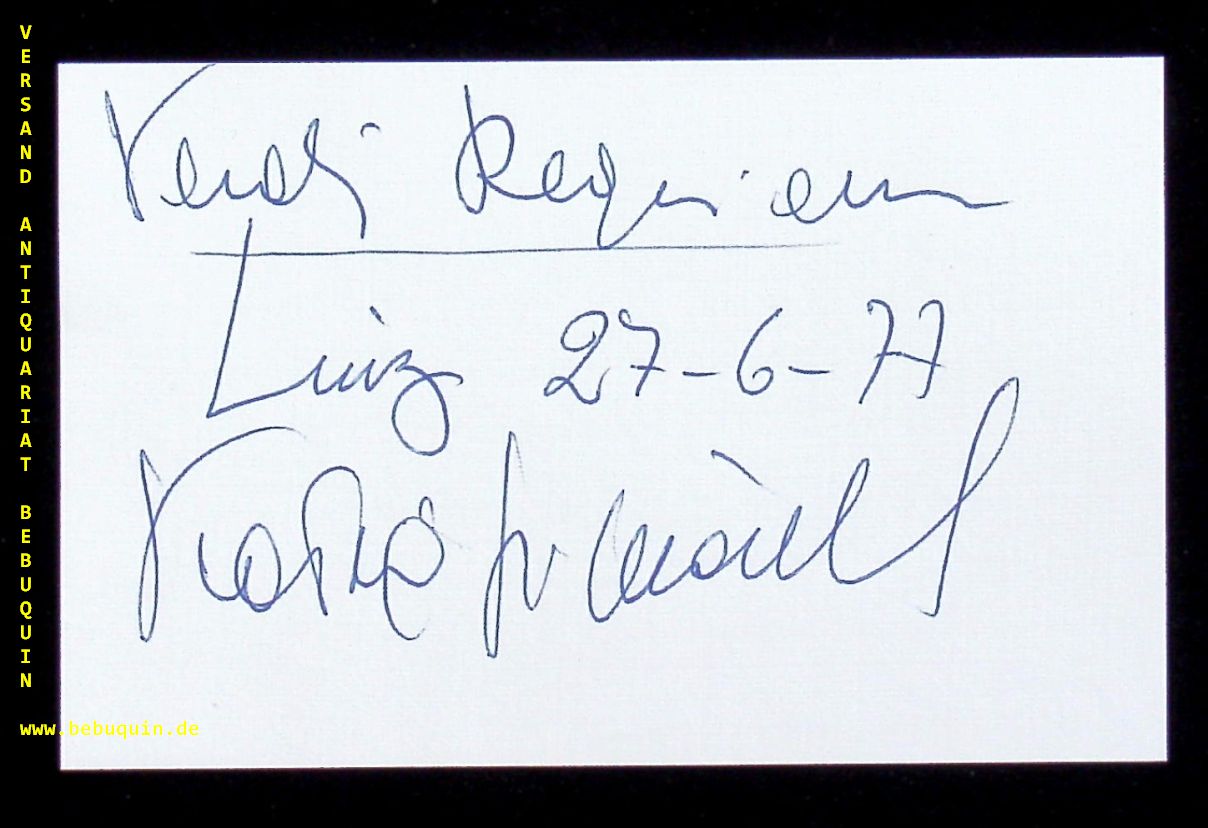 VERSAND ANTIQUARIAT BEBUQUIN
Verdi Requiem
Linz 27-6-77
www.bebuquin.de